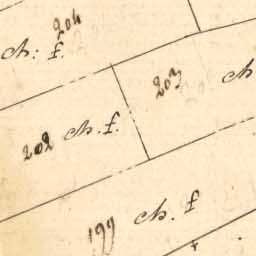 204
ch: f.
203
ch
202 ch. f.
199 ch. f